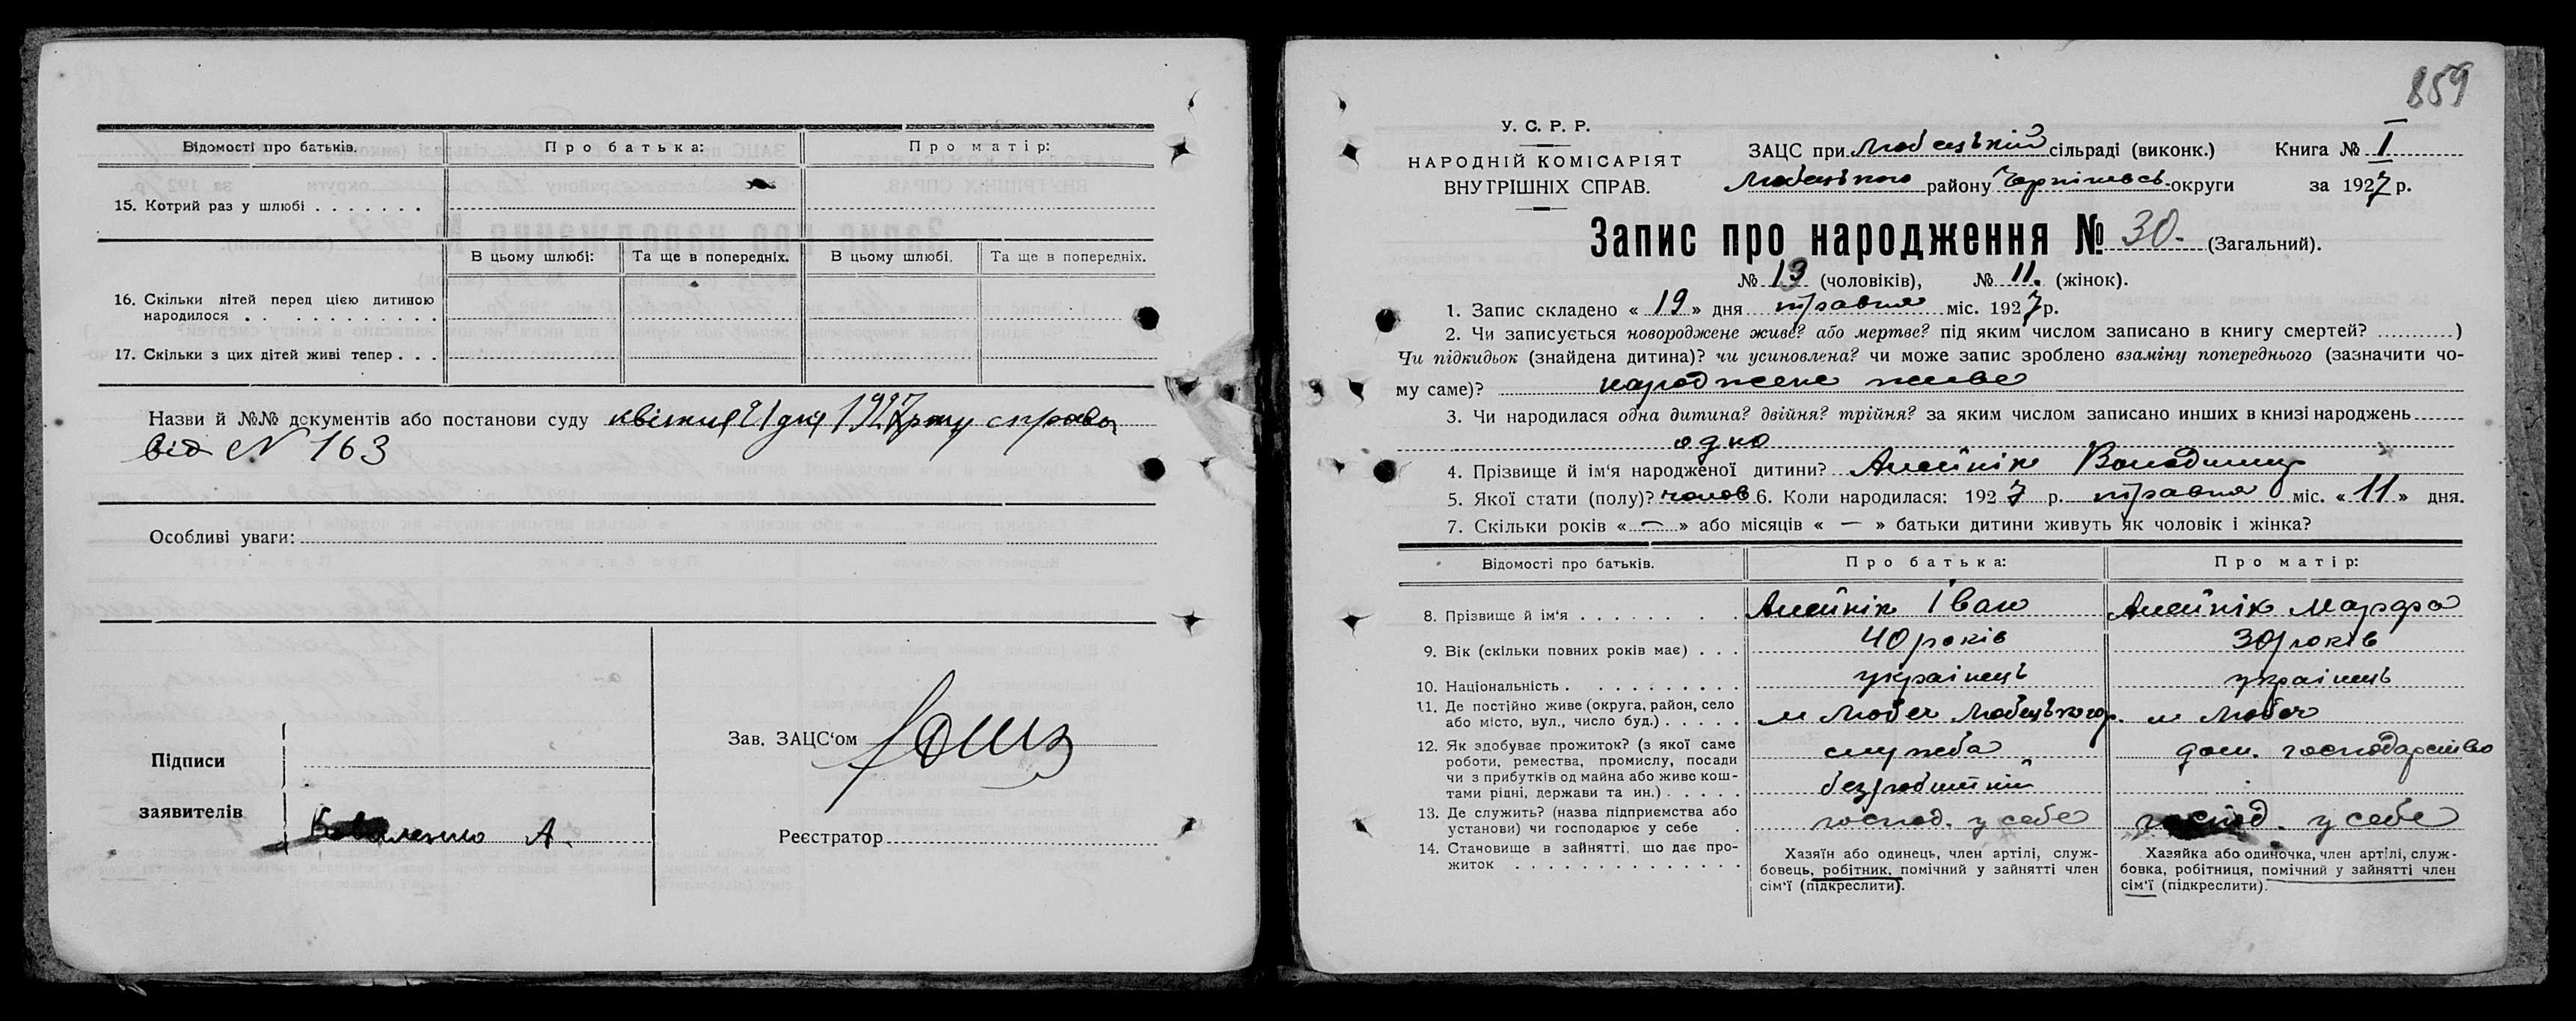 Відомості про батьків.
Про батька:
Про матір:
15. Котрий раз у шлюбі
В цьому шлюбі:
Та ще в попередніх.
В цьому шлюбі.
Та ще в попередніх.
16. Скільки дітей перед цією дитиною
народилося
17. Скільки з цих дітей живі тепер
Назви й №№ документів або постанови суду квітня 21 дня 1927 року справа
від N 163
Особливі уваги:
Підписи
заявителів
Коваленко А.
Зав. ЗАЦС'ом
Реєстратор
859
У. С. Р. Р.
НАРОДНІЙ КОМІСАРІЯТ
ВНУТРІШНІХ СПРАВ.
ЗАЦС при Любецькій сільраді (виконк.) Книга № I
Любецького району Чернігівсь. округи за 1927 р.
Запис про народження № 30. (Загальний).
№ 13 (чоловіків), № 11. (жінок).
1. Запис складено « 19 » дня травня міс. 1927 р.
2. Чи записується новороджене живе? або мертве? під яким числом записано в книгу смертей? )
Чи підкидьок (знайдена дитина)? чи усиновлена? чи може запис зроблено взаміну попереднього (зазначити чо-
му саме)? народжене живе
3. Чи народилася одна дитина? двійня? трійня? за яким числом записано инших в книзі народжень
одно
4. Прізвище й ім'я народженої дитини? Алейнік Володимир
5. Якої стати (полу)? чолов 6. Коли народилася: 1927 р. травня міс. « 11 » дня.
7. Скільки років « — » або місяців « — » батьки дитини живуть як чоловік і жінка?
Відомості про батьків.
Про батька:
Про матір:
8. Прізвище й ім'я
Алейнік Іван
Алейнік Марфа
9. Вік (скільки повних років має)
40 років
30 років
10. Національність
українець
українець
11. Де постійно живе (округа, район, село
або місто, вул., число буд.)
м Любеч Любецького р.
м Любеч
12. Як здобуває прожиток? (з якої саме
роботи, ремества, промислу, посади
чи з прибутків од майна або живе кош-
тами рідні, держави та ин.)
служба
безробітній
дом. господарство
13. Де служить? (назва підприємства або
установи) чи господарює у себе
господ. у себе
господ. у себе
14. Становище в зайнятті, що дає про-
житок
Хазяїн або одинець, член артілі, служ-
бовець, робітник, помічний у зайнятті член
сім'ї (підкреслити).
Хазяйка або одиночка, член артілі, служ-
бовка, робітниця, помічний у зайнятті член
сім'ї (підкреслити).